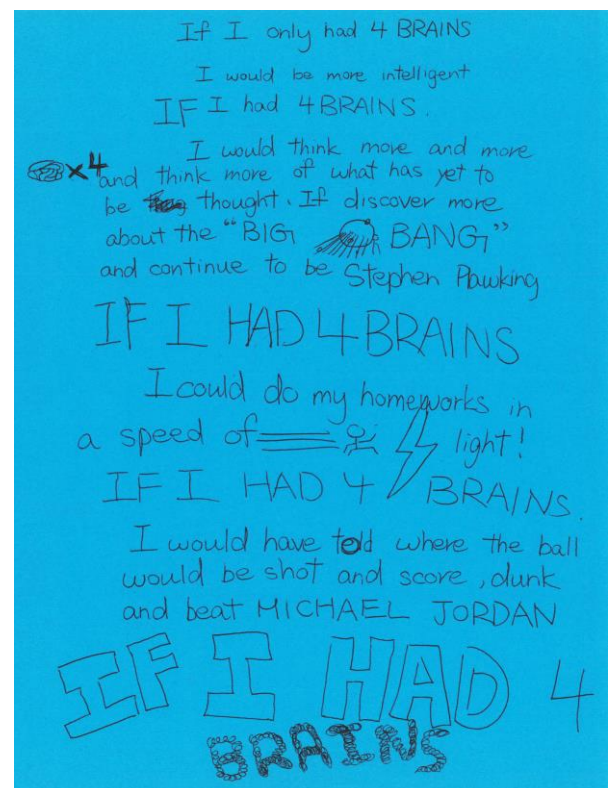 If I only had 4 BRAINS
I would be more intelligent
IF I had 4BRAINS.
I would think more and more
x4 and think more of what has yet to
be thought. If discover more
about the "BIG BANG"
and continue to be Stephen Hawking
IF I HAD 4 BRAINS
I could do my homeworks in
a speed of light!
IF I HAD 4 BRAINS.
I would have told where the ball
would be shot and score, dunk
and beat MICHAEL JORDAN
IF I HAD 4
BRAINS